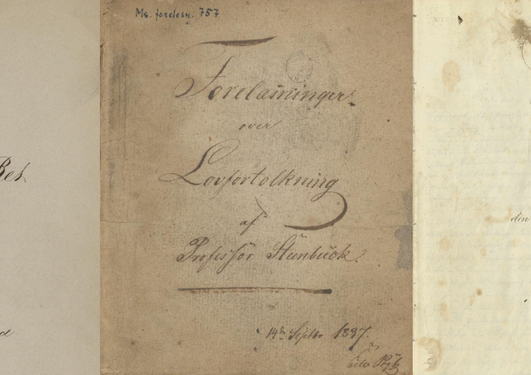 Ms. forelæsn. 757
Forelæsninger
over
Lovfortolkning
af
Professor Steenbuck.
14de Septbr 1837.
den